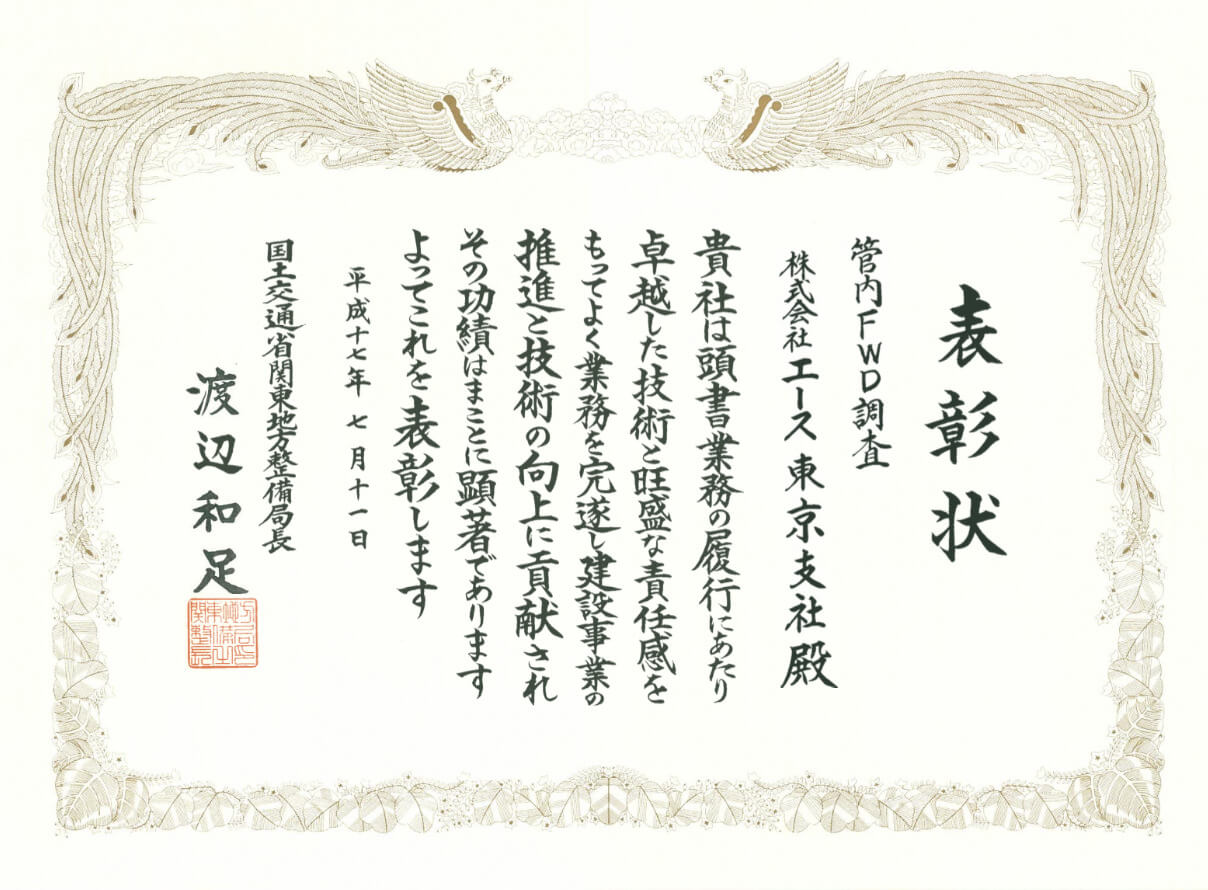 表彰状
管内FWD調査
株式会社エース東京支社殿
貴社は頭書業務の履行にあたり
卓越した技術と旺盛な責任感を
もってよく業務を完遂し建設事業の
推進と技術の向上に貢献され
その功績はまことに顕著であります
よってこれを表彰します
平成十七年七月十一日
国土交通省関東地方整備局長
渡辺和足